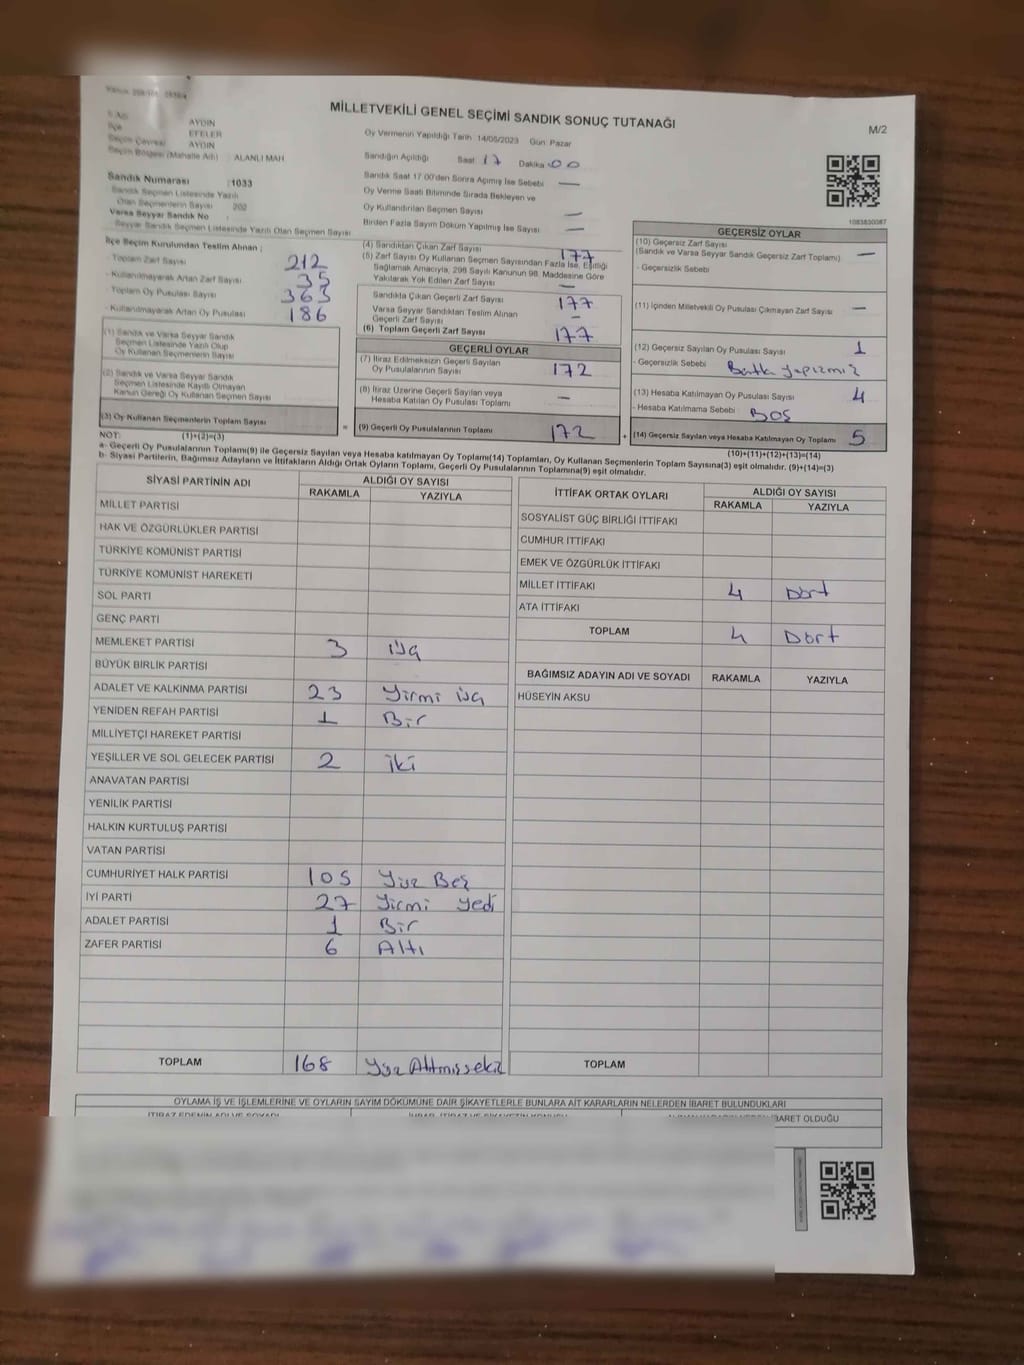 MİLLETVEKİLİ GENEL SEÇİMİ SANDIK SONUÇ TUTANAĞI
M/2
İlçe
Seçim Çevresi
Seçim Bölgesi (Mahalle Adı) : ALANLI MAH
AYDIN
EFELER
AYDIN
Oy Vermenin Yapıldığı Tarih 14/05/2023 Gün: Pazar
Sandığın Açıldığı Saat 17 Dakika 00
Sandık Saat 17 00'den Sonra Açılmış İse Sebebi —
Oy Verme Saati Bitiminde Sırada Bekleyen ve
Oy Kullandırılan Seçmen Sayısı —
Birden Fazla Sayım Döküm Yapılmış İse Sayısı —
Sandık Numarası :1033
Sandık Seçmen Listesinde Yazılı
Olan Seçmenlerin Sayısı 202
Varsa Seyyar Sandık No :
Seyyar Sandık Seçmen Listesinde Yazılı Olan Seçmen Sayısı
İlçe Seçim Kurulundan Teslim Alınan ;
- Toplam Zarf Sayısı 212
- Kullanılmayarak Artan Zarf Sayısı 35
- Toplam Oy Pusulası Sayısı 363
- Kullanılmayarak Artan Oy Pusulası 186
(1) Sandık ve Varsa Seyyar Sandık
Seçmen Listesinde Yazılı Olup
Oy Kullanan Seçmenlerin Sayısı
(2) Sandık ve Varsa Seyyar Sandık
Seçmen Listesinde Kayıtlı Olmayan
Kanun Gereği Oy Kullanan Seçmen Sayısı
(3) Oy Kullanan Seçmenlerin Toplam Sayısı
=
(4) Sandıktan Çıkan Zarf Sayısı 177
(5) Zarf Sayısı Oy Kullanan Seçmen Sayısından Fazla İse, Eşitliği
Sağlamak Amacıyla, 298 Sayılı Kanunun 98. Maddesine Göre
Yakılarak Yok Edilen Zarf Sayısı —
Sandıkta Çıkan Geçerli Zarf Sayısı 177
Varsa Seyyar Sandıktan Teslim Alınan
Geçerli Zarf Sayısı —
(6) Toplam Geçerli Zarf Sayısı 177
GEÇERLİ OYLAR
(7) İtiraz Edilmeksizin Geçerli Sayılan
Oy Pusulalarının Sayısı 172
(8) İtiraz Üzerine Geçerli Sayılan veya
Hesaba Katılan Oy Pusulası Toplamı —
(9) Geçerli Oy Pusulalarının Toplamı 172
+
1083830087
GEÇERSİZ OYLAR
(10) Geçersiz Zarf Sayısı
(Sandık ve Varsa Seyyar Sandık Geçersiz Zarf Toplamı) —
- Geçersizlik Sebebi
(11) İçinden Milletvekili Oy Pusulası Çıkmayan Zarf Sayısı —
(12) Geçersiz Sayılan Oy Pusulası Sayısı 1
- Geçersizlik Sebebi
(13) Hesaba Katılmayan Oy Pusulası Sayısı 4
- Hesaba Katılmama Sebebi : BOŞ
(14) Geçersiz Sayılan veya Hesaba Katılmayan Oy Toplamı 5
NOT: (1)+(2)=(3)
(10)+(11)+(12)+(13)=(14)
a- Geçerli Oy Pusulalarının Toplamı(9) ile Geçersiz Sayılan veya Hesaba katılmayan Oy Toplamı(14) Toplamları, Oy Kullanan Seçmenlerin Toplam Sayısına(3) eşit olmalıdır. (9)+(14)=(3)
b- Siyasi Partilerin, Bağımsız Adayların ve İttifakların Aldığı Ortak Oyların Toplamı, Geçerli Oy Pusulalarının Toplamına(9) eşit olmalıdır.
SİYASİ PARTİNİN ADI ALDIĞI OY SAYISI
RAKAMLA YAZIYLA
MİLLET PARTİSİ
HAK VE ÖZGÜRLÜKLER PARTİSİ
TÜRKİYE KOMÜNİST PARTİSİ
TÜRKİYE KOMÜNİST HAREKETİ
SOL PARTİ
GENÇ PARTİ
MEMLEKET PARTİSİ 3 üç
BÜYÜK BİRLİK PARTİSİ
ADALET VE KALKINMA PARTİSİ 23 Yirmi üç
YENİDEN REFAH PARTİSİ 1 Bir
MİLLİYETÇİ HAREKET PARTİSİ
YEŞİLLER VE SOL GELECEK PARTİSİ 2 iki
ANAVATAN PARTİSİ
YENİLİK PARTİSİ
HALKIN KURTULUŞ PARTİSİ
VATAN PARTİSİ
CUMHURİYET HALK PARTİSİ 105 Yüz Beş
İYİ PARTİ 27 Yirmi yedi
ADALET PARTİSİ 1 Bir
ZAFER PARTİSİ 6 Altı
TOPLAM 168 Yüz Altmışsekiz
İTTİFAK ORTAK OYLARI ALDIĞI OY SAYISI
RAKAMLA YAZIYLA
SOSYALİST GÜÇ BİRLİĞİ İTTİFAKI
CUMHUR İTTİFAKI
EMEK VE ÖZGÜRLÜK İTTİFAKI
MİLLET İTTİFAKI 4 Dört
ATA İTTİFAKI
TOPLAM 4 Dört
BAĞIMSIZ ADAYIN ADI VE SOYADI RAKAMLA YAZIYLA
HÜSEYİN AKSU
TOPLAM
OYLAMA İŞ VE İŞLEMLERİNE VE OYLARIN SAYIM DÖKÜMÜNE DAİR ŞİKAYETLERLE BUNLARA AİT KARARLARIN NELERDEN İBARET BULUNDUKLARI
İTİRAZ EDENİN ADI VE SOYADI
İBARET OLDUĞU